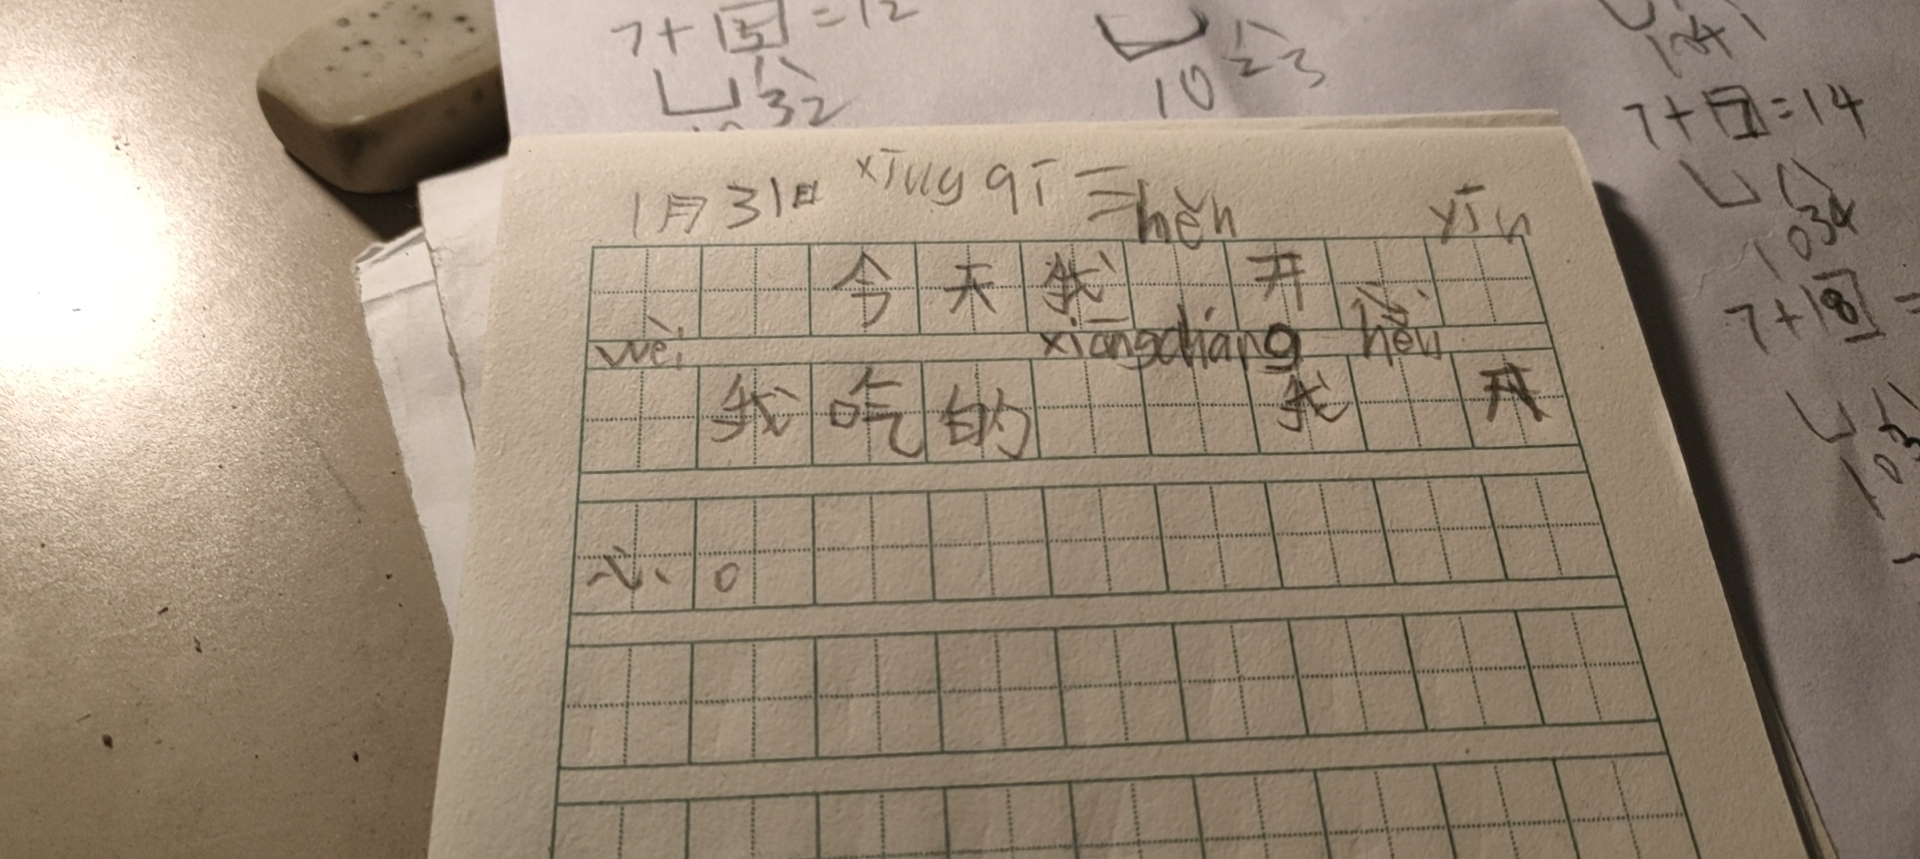 7+5=12
32
10 23
7+7=14
10 34
7+8=
10
1月31日 xīng qī 三
今天我 hěn 开 心, yīn
wèi 我吃的 xiāngcháng 我 hěn 开
心。